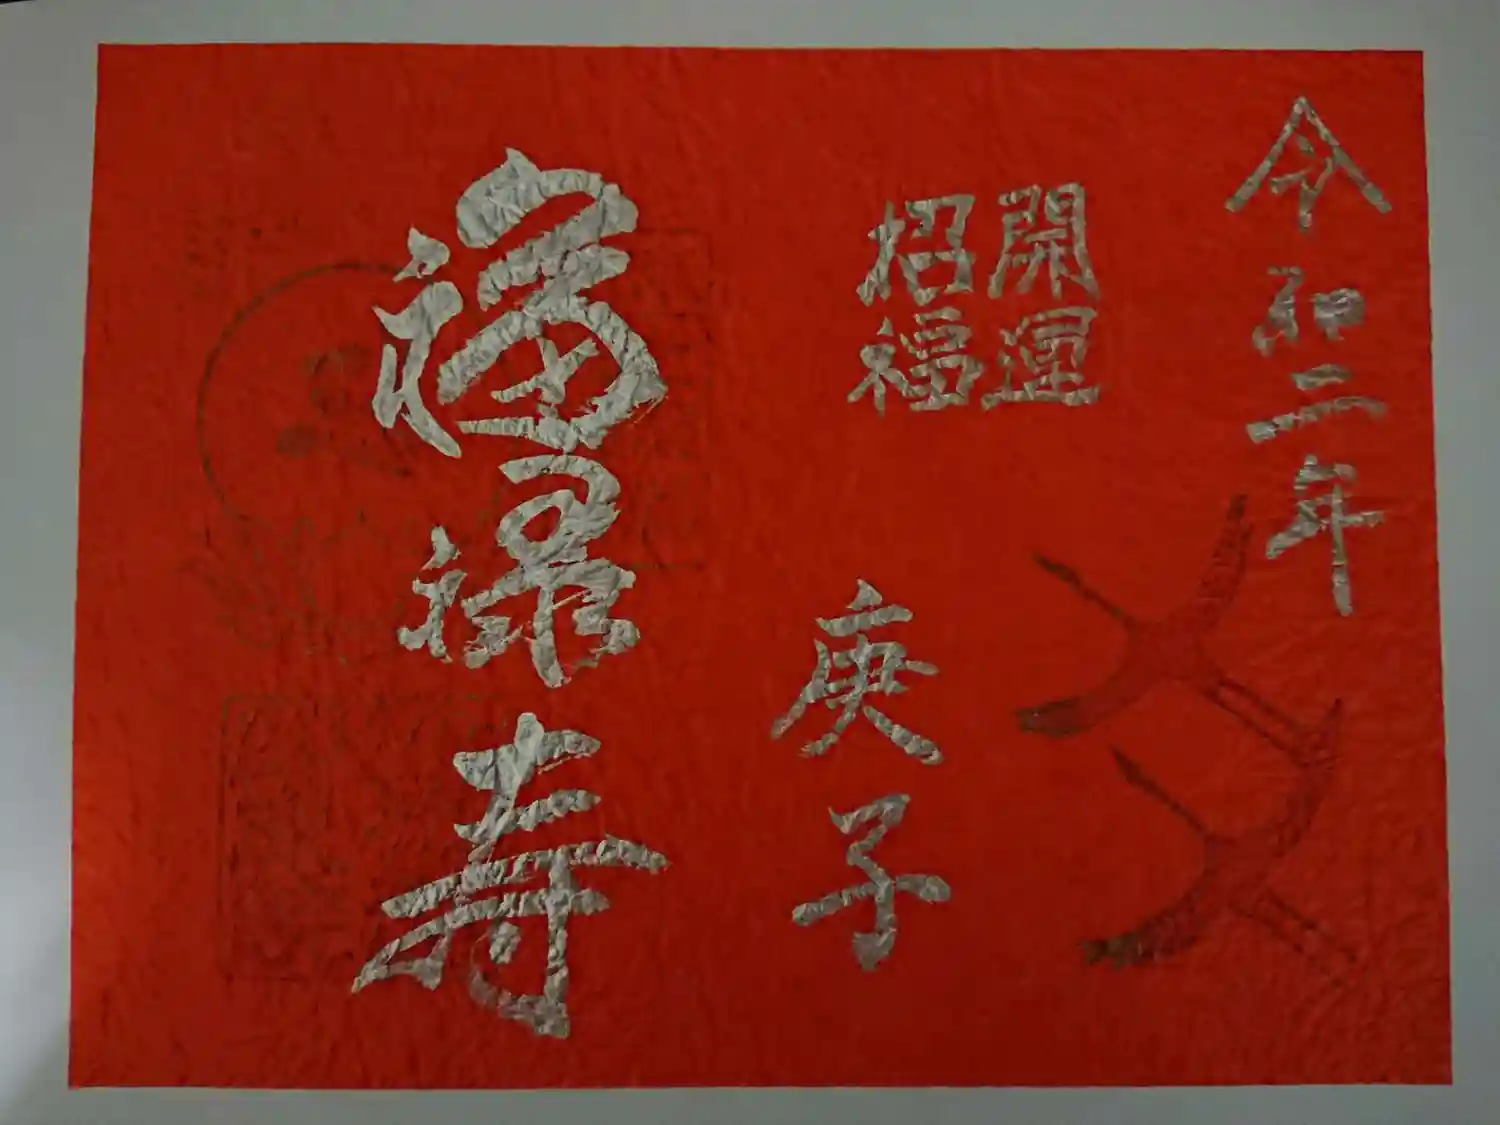 令和二年
開運
招福
庚子
福禄寿